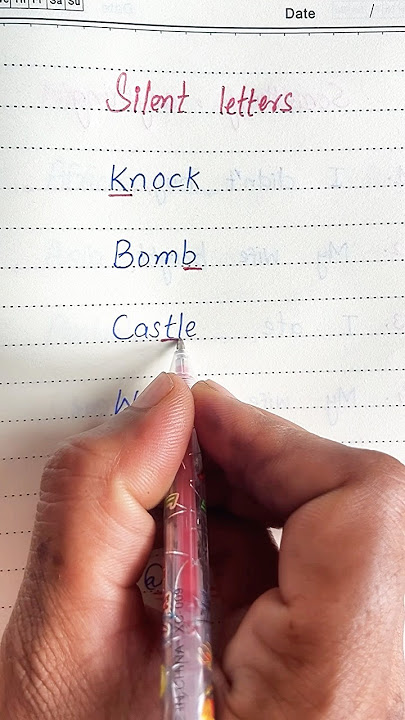 Sa Su
Date /
Silent letters
Knock
Bomb
Castle
W